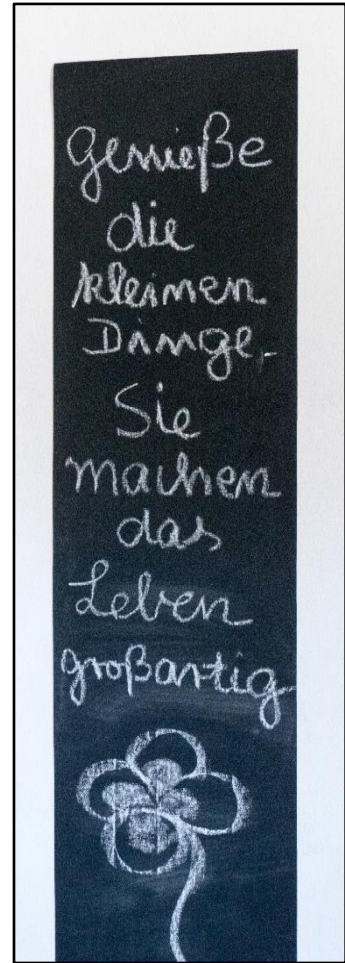 Genieße
die
kleinen
Dinge,
Sie
machen
das
Leben
großartig